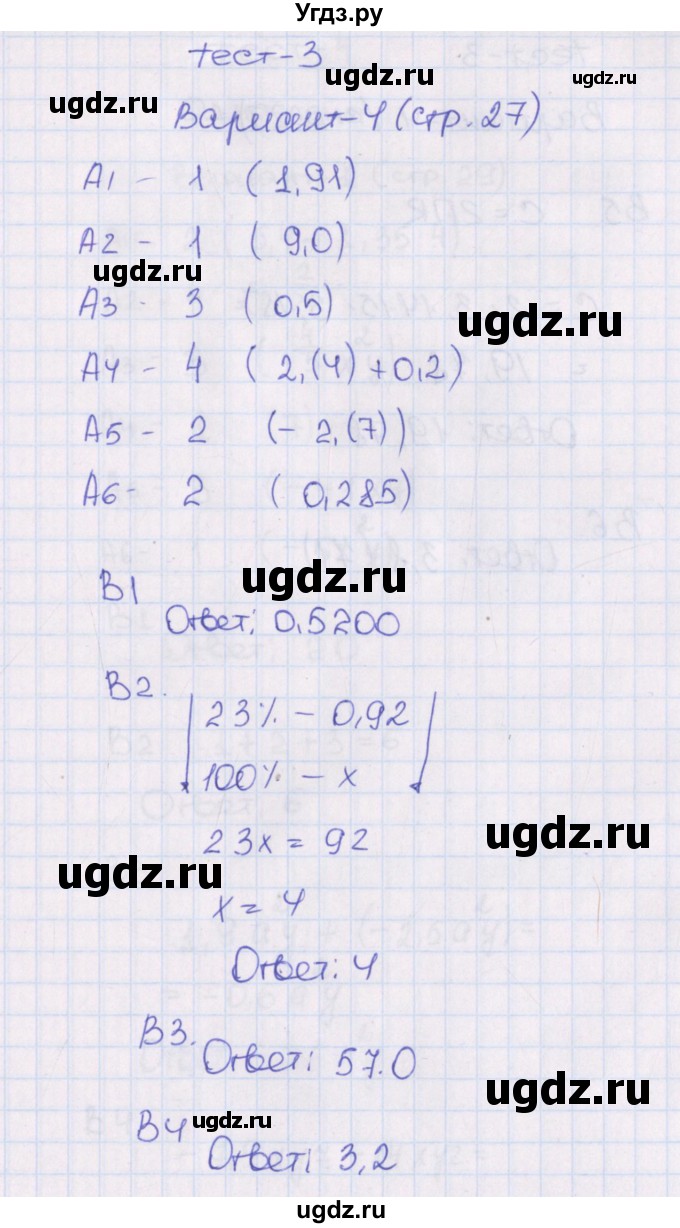 Угдз.ру
тест-3
ugdz.ru
ugdz.ru
Вариант-4 (стр. 27)
ugdz.ru
A1 - 1 (1,91)
A2 - 1 (9,0)
ugdz.ru
A3 - 3 (0,5)
ugdz.ru
A4 - 4 (2,(4)+0,2)
A5 - 2 (-2,(7))
A6 - 2 (0,285)
ugdz.ru
B1
Ответ: 0,5200
B2.
23% - 0,92
100% - x
23x = 92
ugdz.ru
ugdz.ru
x = 4
Ответ: 4
B3.
Ответ: 57.0
ugdz.ru
B4
ugdz.ru
Ответ: 3,2
ugdz.ru